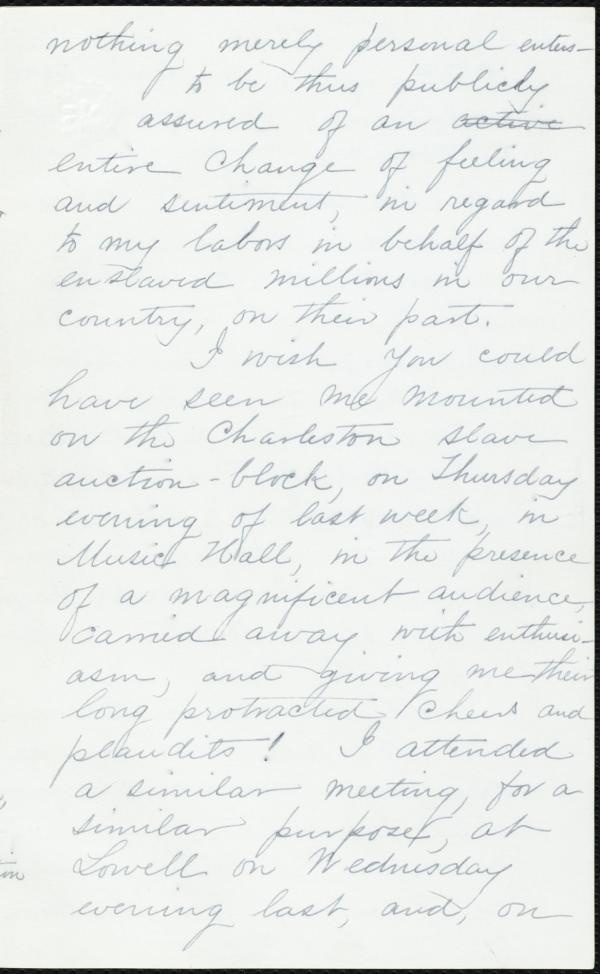 nothing merely personal enters—
to be thus publicly
assured of an active
entire change of feeling
and sentiment, in regard
to my labors in behalf of the
enslaved millions in our
country, on their part.
I wish you could
have seen me mounted
on the Charleston slave
auction-block, on Thursday
evening of last week, in
Music Hall, in the presence
of a magnificent audience,
carried away with enthusi-
asm, and giving me their
long protracted cheers and
plaudits! I attended
a similar meeting, for a
similar purpose, at
Lowell on Wednesday
evening last, and, on